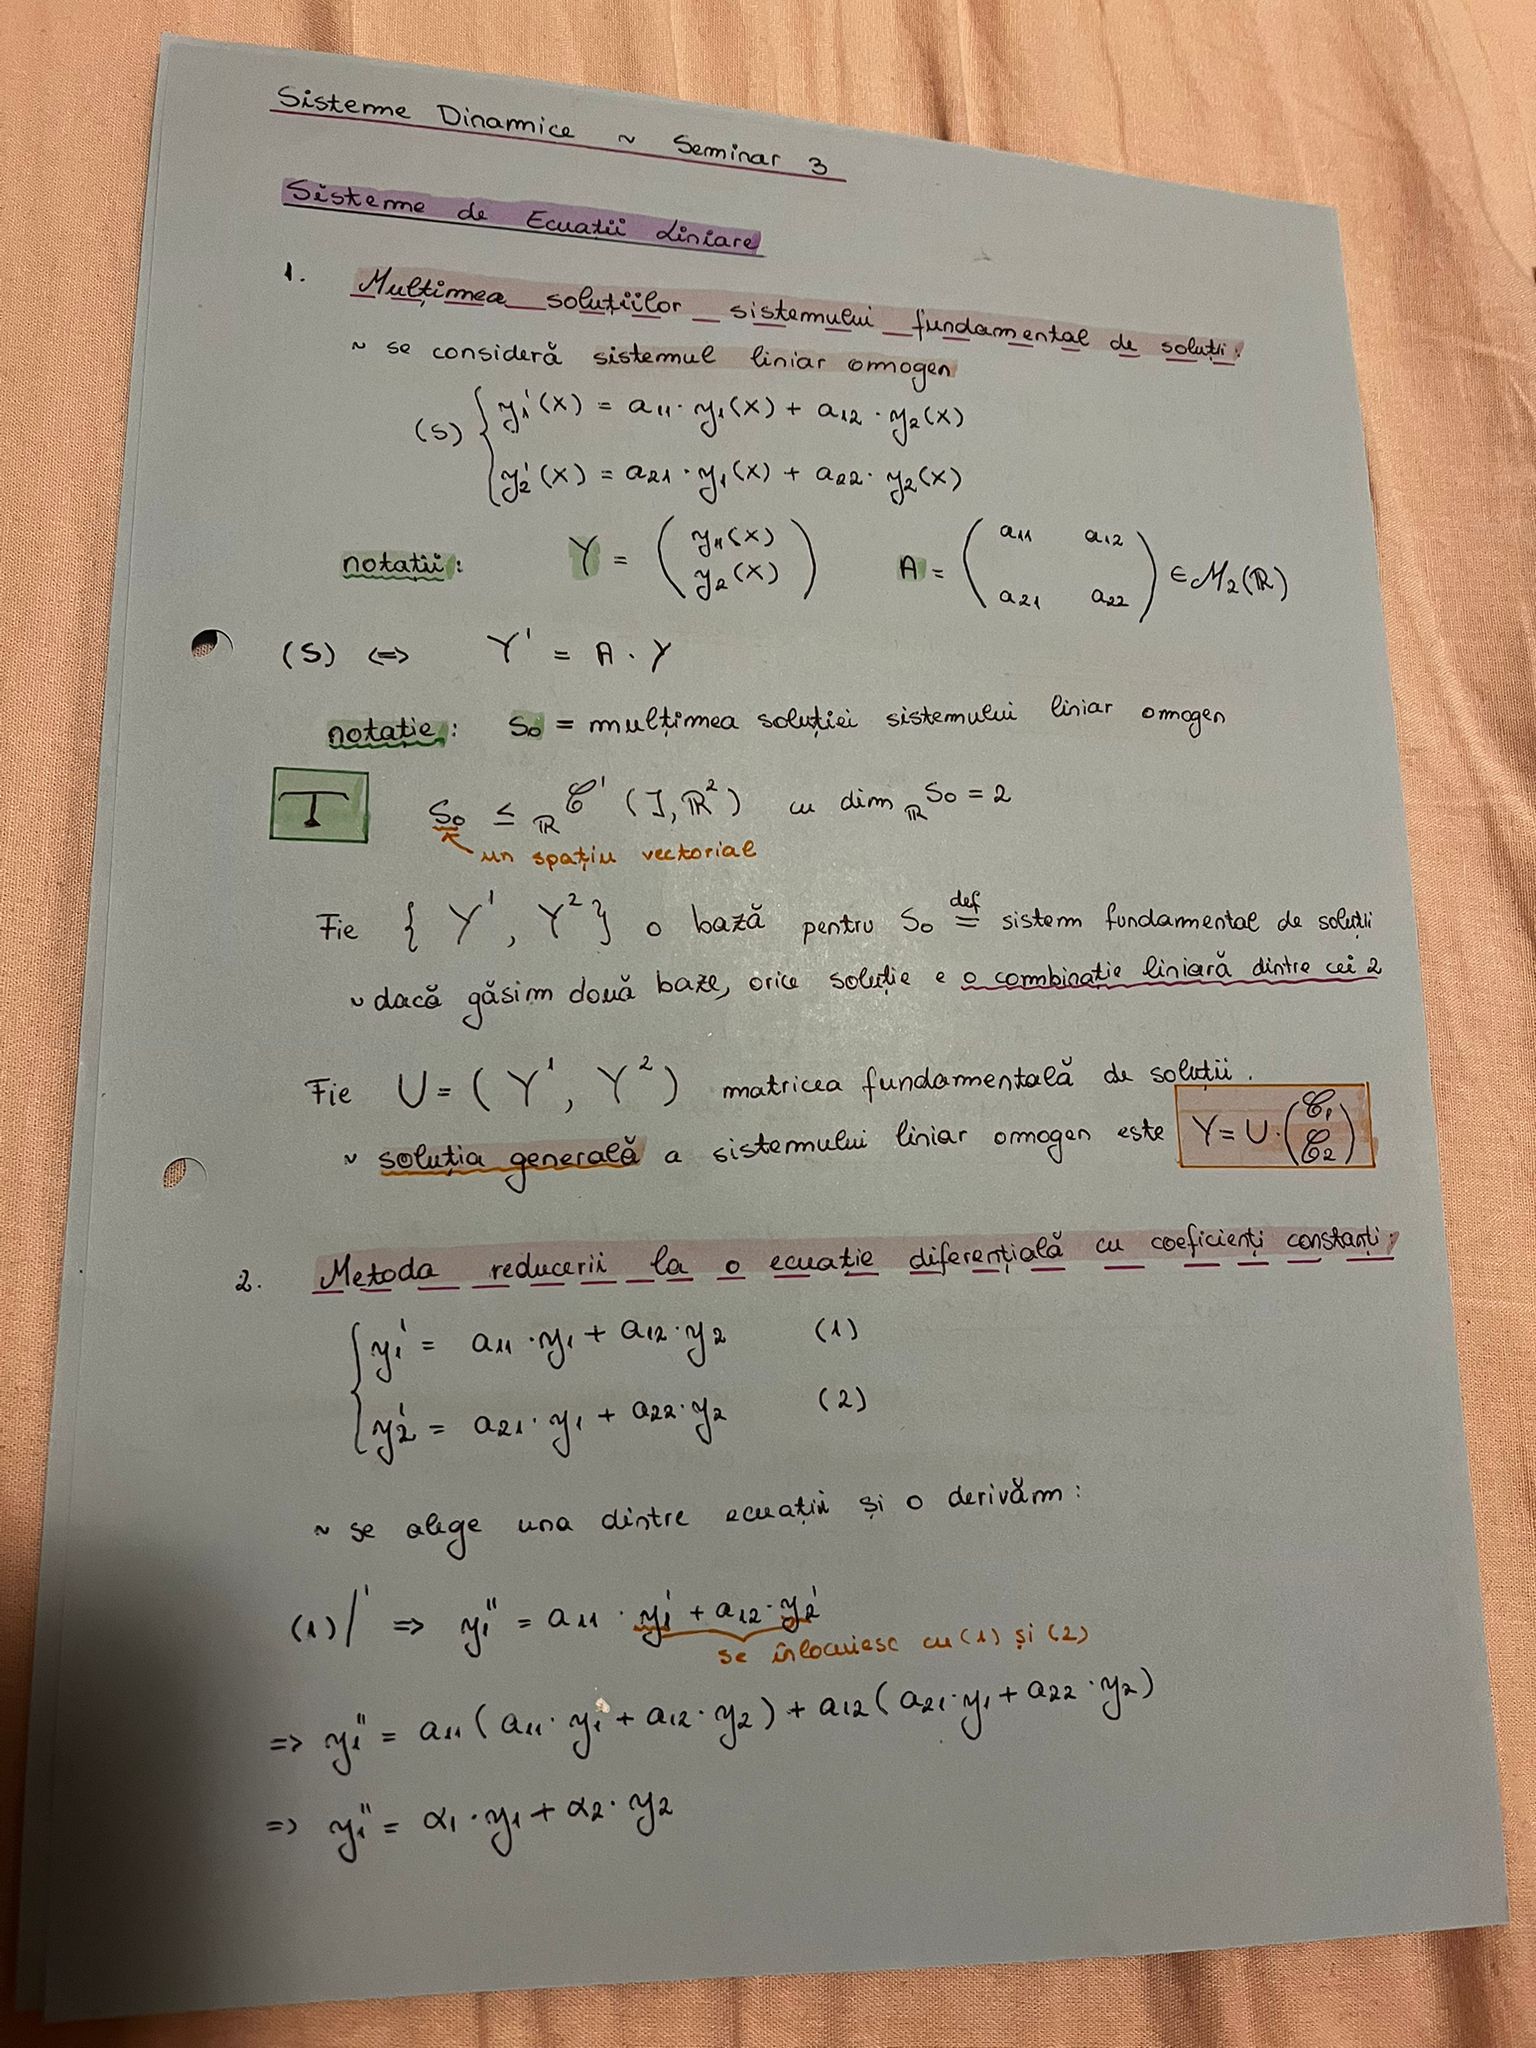 Sisteme Dinamice ~ Seminar 3
Sisteme de Ecuații Liniare
1. Mulțimea soluțiilor sistemului fundamental de soluții:
~ se consideră sistemul liniar omogen
(S) { y₁'(x) = a₁₁ · y₁(x) + a₁₂ · y₂(x)
y₂'(x) = a₂₁ · y₁(x) + a₂₂ · y₂(x)
notații: Y = ( y₁₁(x) y₂(x) ) A = ( a₁₁ a₁₂ a₂₁ a₂₂ ) ∈ M₂(ℝ)
(S) <=> Y' = A · Y
notație: S₀ = mulțimea soluției sistemului liniar omogen
T S₀ ≤ ℝ C¹ (J, ℝ²) cu dim ℝ S₀ = 2
un spațiu vectorial
Fie { Y¹, Y² } o bază pentru S₀ def = sistem fundamental de soluții
~ dacă găsim două baze, orice soluție e o combinație liniară dintre cei 2
Fie U = ( Y¹, Y² ) matricea fundamentală de soluții.
~ soluția generală a sistemului liniar omogen este Y = U · ( C₁ C₂ )
2. Metoda reducerii la o ecuație diferențială cu coeficienți constanți:
{ y₁' = a₁₁ · y₁ + a₁₂ · y₂ (1)
y₂' = a₂₁ · y₁ + a₂₂ · y₂ (2)
~ se alege una dintre ecuații și o derivăm:
(1)/' => y₁'' = a₁₁ · y₁' + a₁₂ · y₂'
se înlocuiesc cu (1) și (2)
=> y₁'' = a₁₁ ( a₁₁ · y₁ + a₁₂ · y₂ ) + a₁₂ ( a₂₁ · y₁ + a₂₂ · y₂ )
=> y₁'' = α₁ · y₁ + α₂ · y₂